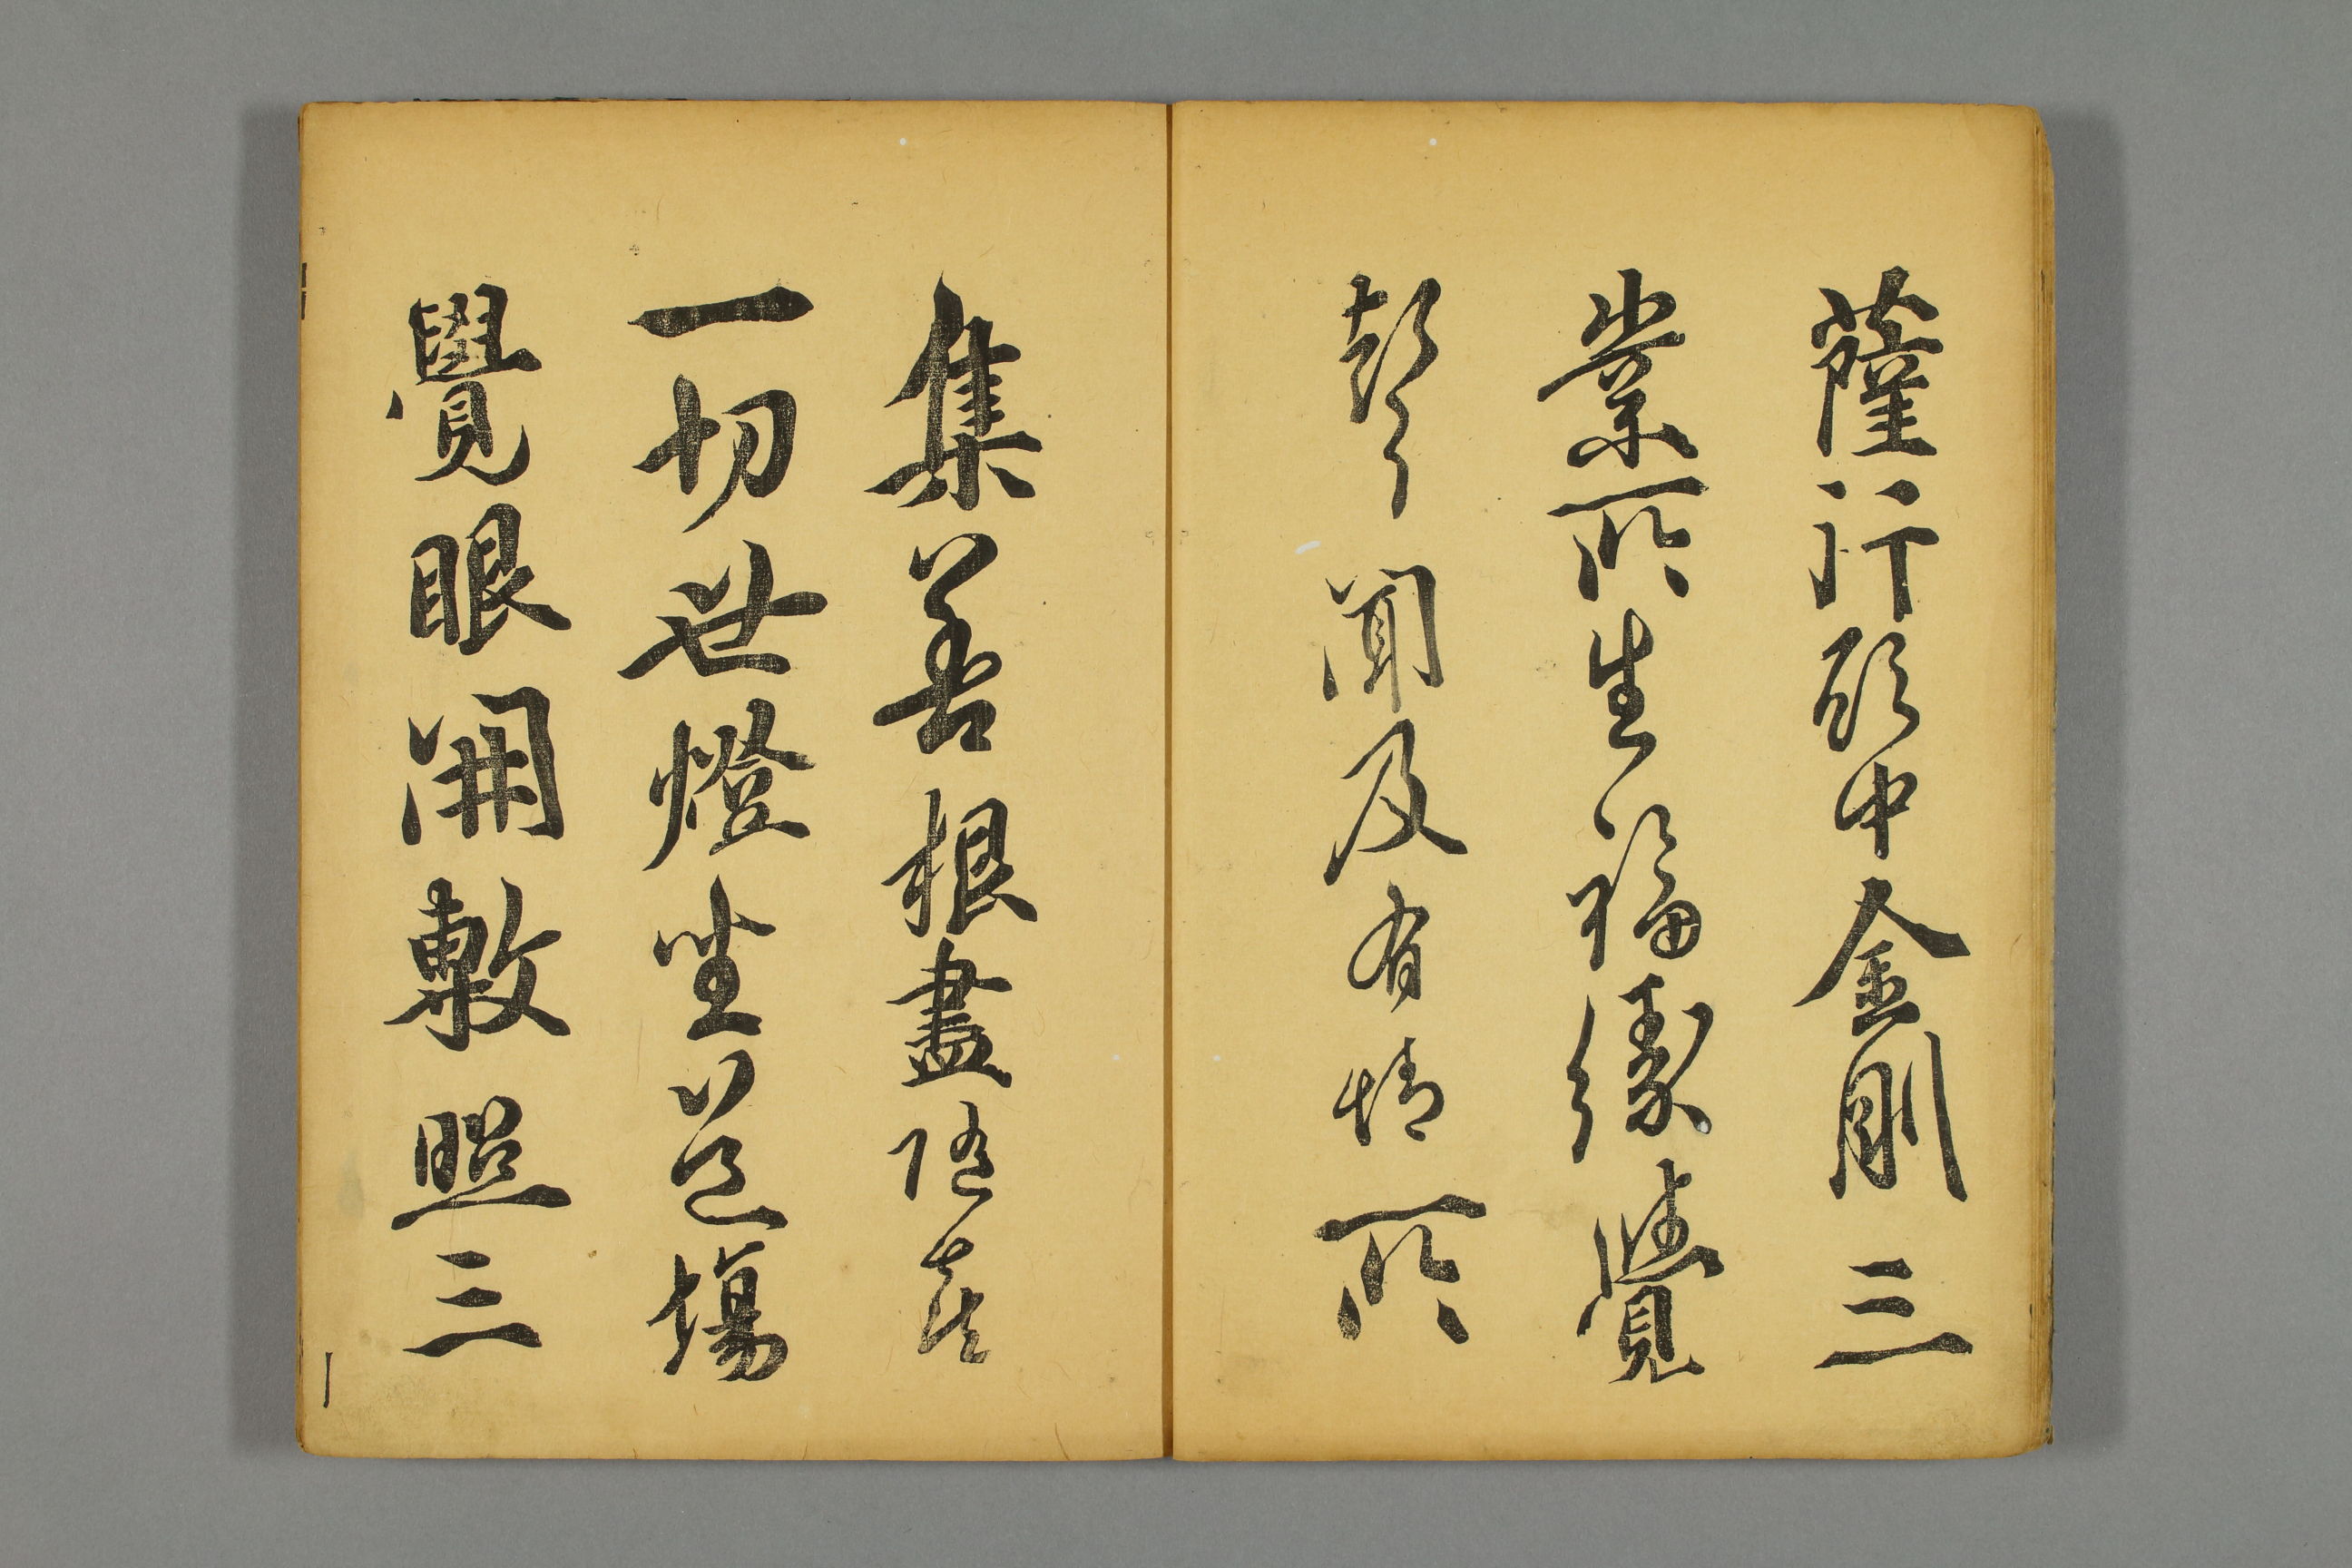 薩行願中金剛三
業所生福緣覺
聲聞及有情所
集善根盡隨喜
一切世燈坐道場
覺眼開敷照三